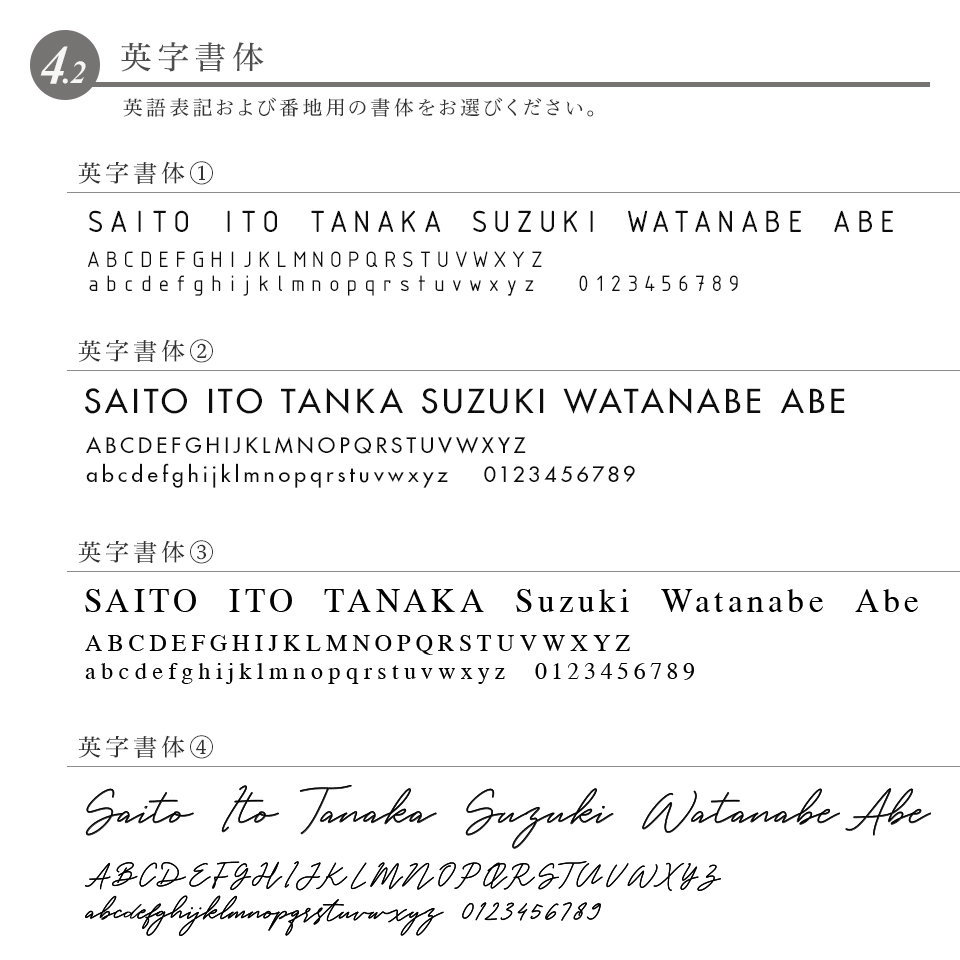 4.2 英字書体
英語表記および番地用の書体をお選びください。
英字書体①
SAITO ITO TANAKA SUZUKI WATANABE ABE
ABCDEFGHIJKLMNOPQRSTUVWXYZ
abcdefghijklmnopqrstuvwxyz 0123456789
英字書体②
SAITO ITO TANKA SUZUKI WATANABE ABE
ABCDEFGHIJKLMNOPQRSTUVWXYZ
abcdefghijklmnopqrstuvwxyz 0123456789
英字書体③
SAITO ITO TANAKA Suzuki Watanabe Abe
ABCDEFGHIJKLMNOPQRSTUVWXYZ
abcdefghijklmnopqrstuvwxyz 0123456789
英字書体④
Saito Ito Tanaka Suzuki Watanabe Abe
ABCDEFGHIJKLMNOPQRSTUVWXYZ
abcdefghijklmnopqrstuvwxyz 0123456789